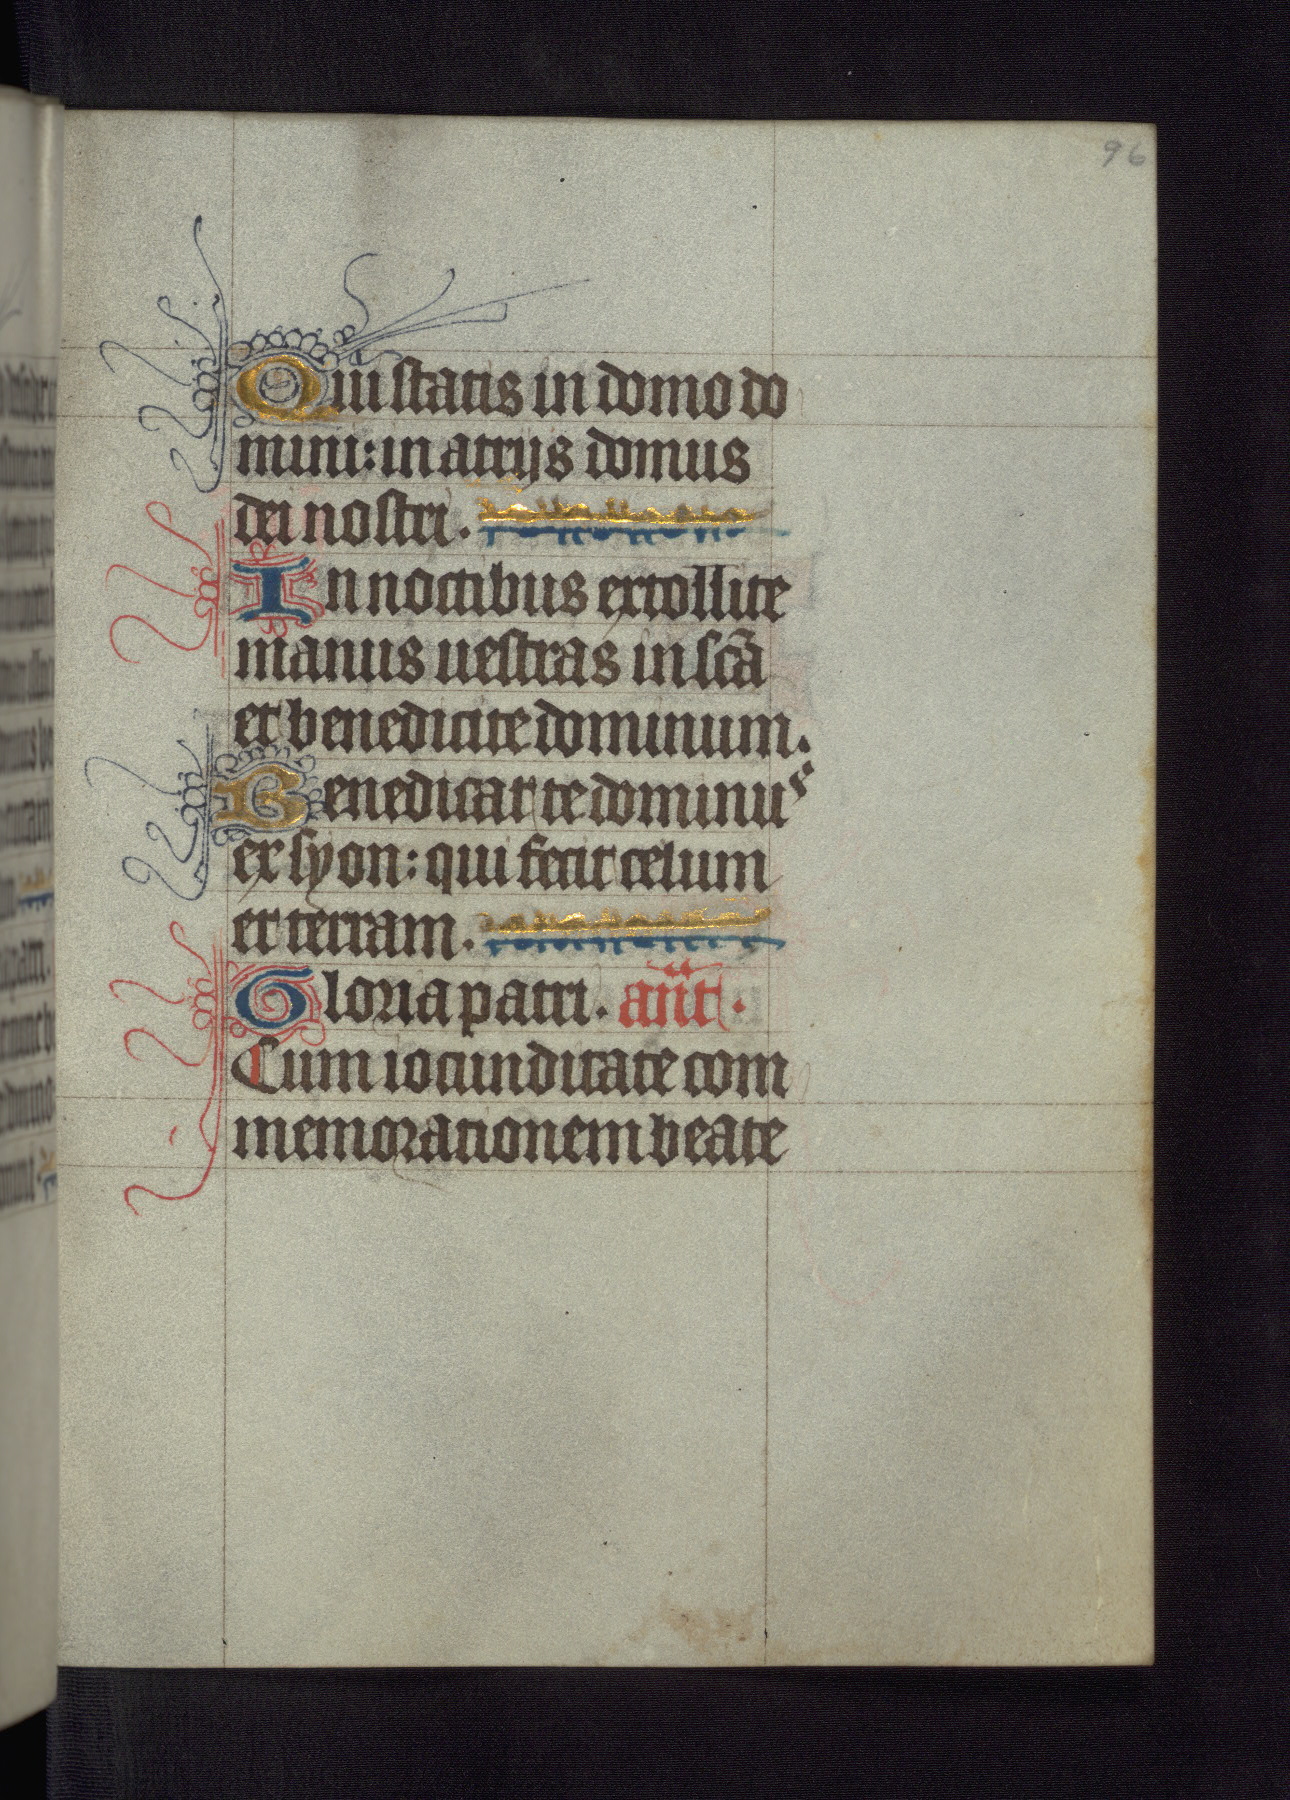 96
Qui statis in domo do
mini: in atrijs domus
dei nostri.
In noctibus extollite
manus uestras in scā
et benedicite dominum.
Benedicat te dominus
ex syon: qui fecit celum
et terram.
Gloria patri. an̄t.
Cum iocunditate com
memorationem beate